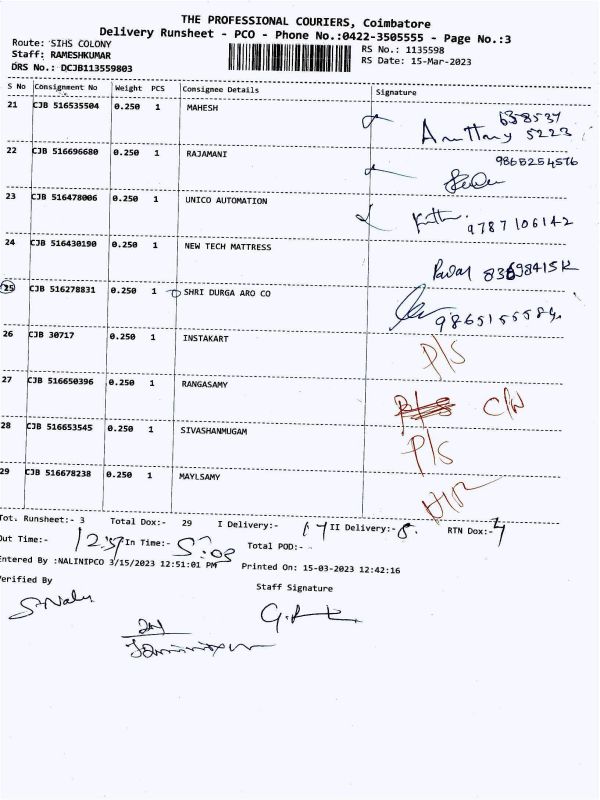 THE PROFESSIONAL COURIERS, Coimbatore
Delivery Runsheet - PCO - Phone No.:0422-3505555 - Page No.:3
Route: SIHS COLONY
Staff: RAMESHKUMAR
DRS No.: DCJB113559803
RS No.: 1135598
RS Date: 15-Mar-2023
S No Consignment No Weight PCS Consignee Details Signature
21 CJB 516535504 0.250 1 MAHESH
22 CJB 516696680 0.250 1 RAJAMANI 9865254576
23 CJB 516478006 0.250 1 UNICO AUTOMATION 9787106142
24 CJB 516430190 0.250 1 NEW TECH MATTRESS
25 CJB 516278831 0.250 1 SHRI DURGA ARO CO
26 CJB 30717 0.250 1 INSTAKART P/S
27 CJB 516650396 0.250 1 RANGASAMY
28 CJB 516653545 0.250 1 SIVASHANMUGAM P/S
29 CJB 516678238 0.250 1 MAYLSAMY
Tot. Runsheet:- 3 Total Dox:- 29 I Delivery:- 17 II Delivery:- 8. RTN Dox:- 4
Out Time:- 12:57 In Time:- 5:03 Total POD:- -
Entered By :NALINIPCO 3/15/2023 12:51:01 PM Printed On: 15-03-2023 12:42:16
Verified By Staff Signature